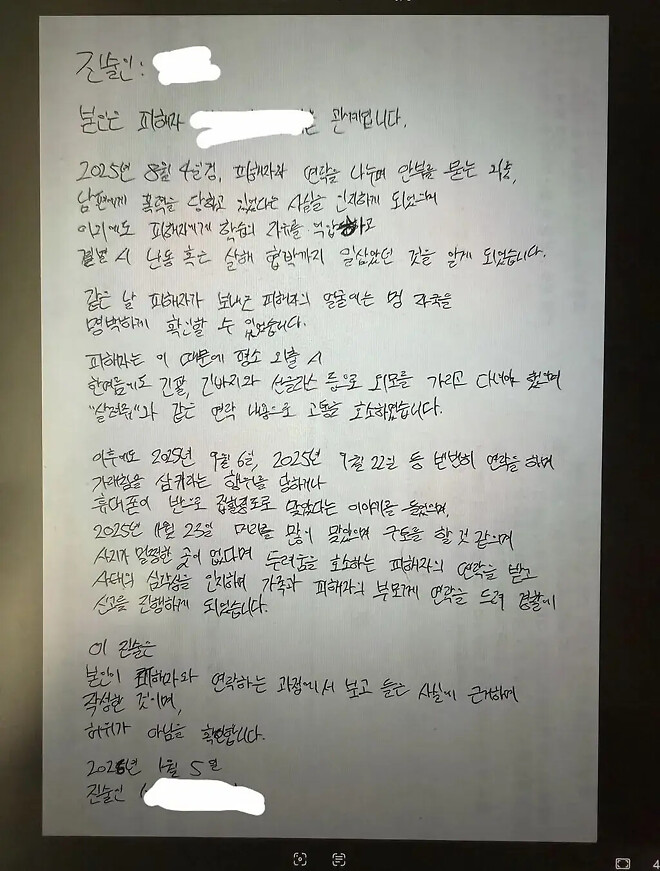 진술인 :
본인은 피해자 관계입니다.
2025년 8월 4일경, 피해자와 연락을 나누며 안부를 묻는 과정,
남편에게 폭력을 당하고 있었다는 사실을 인지하게 되었으며
이외에도 피해자에게 학습의 자유를 억압하고
결별 시 난동 혹은 살해 협박까지 일삼았던 것을 알게 되었습니다.
같은 날 피해자가 보내온 피해자의 얼굴에는 멍 자국을
명백하게 확인할 수 있었습니다.
피해자는 이 때문에 평소 외출 시
한여름에도 긴팔, 긴바지와 선글라스 등으로 외모를 가리고 다녀야 했으며
"살려줘"와 같은 연락 내용으로 고통을 호소하였습니다.
이후에도 2025년 9월 6일, 2025년 9월 22일 등 빈번히 연락을 하며
가래침을 삼키라는 행위를 당하거나
휴대폰이 반으로 접힐정도로 맞았다는 이야기를 들었으며,
2025년 11월 23일 머리를 많이 맞았으며 구토를 할 것 같으며
사지가 멀쩡한 곳이 없다며 두려움을 호소하는 피해자의 연락을 받고
사태의 심각성을 인지하여 가족과 피해자의 부모께 연락을 드려 경찰에
신고를 진행하게 되었습니다.
이 진술은
본인이 피해자와 연락하는 과정에서 보고 들은 사실에 근거하여
작성한 것이며,
허위가 아님을 확인합니다.
2026년 1월 5일
진술인 (
4